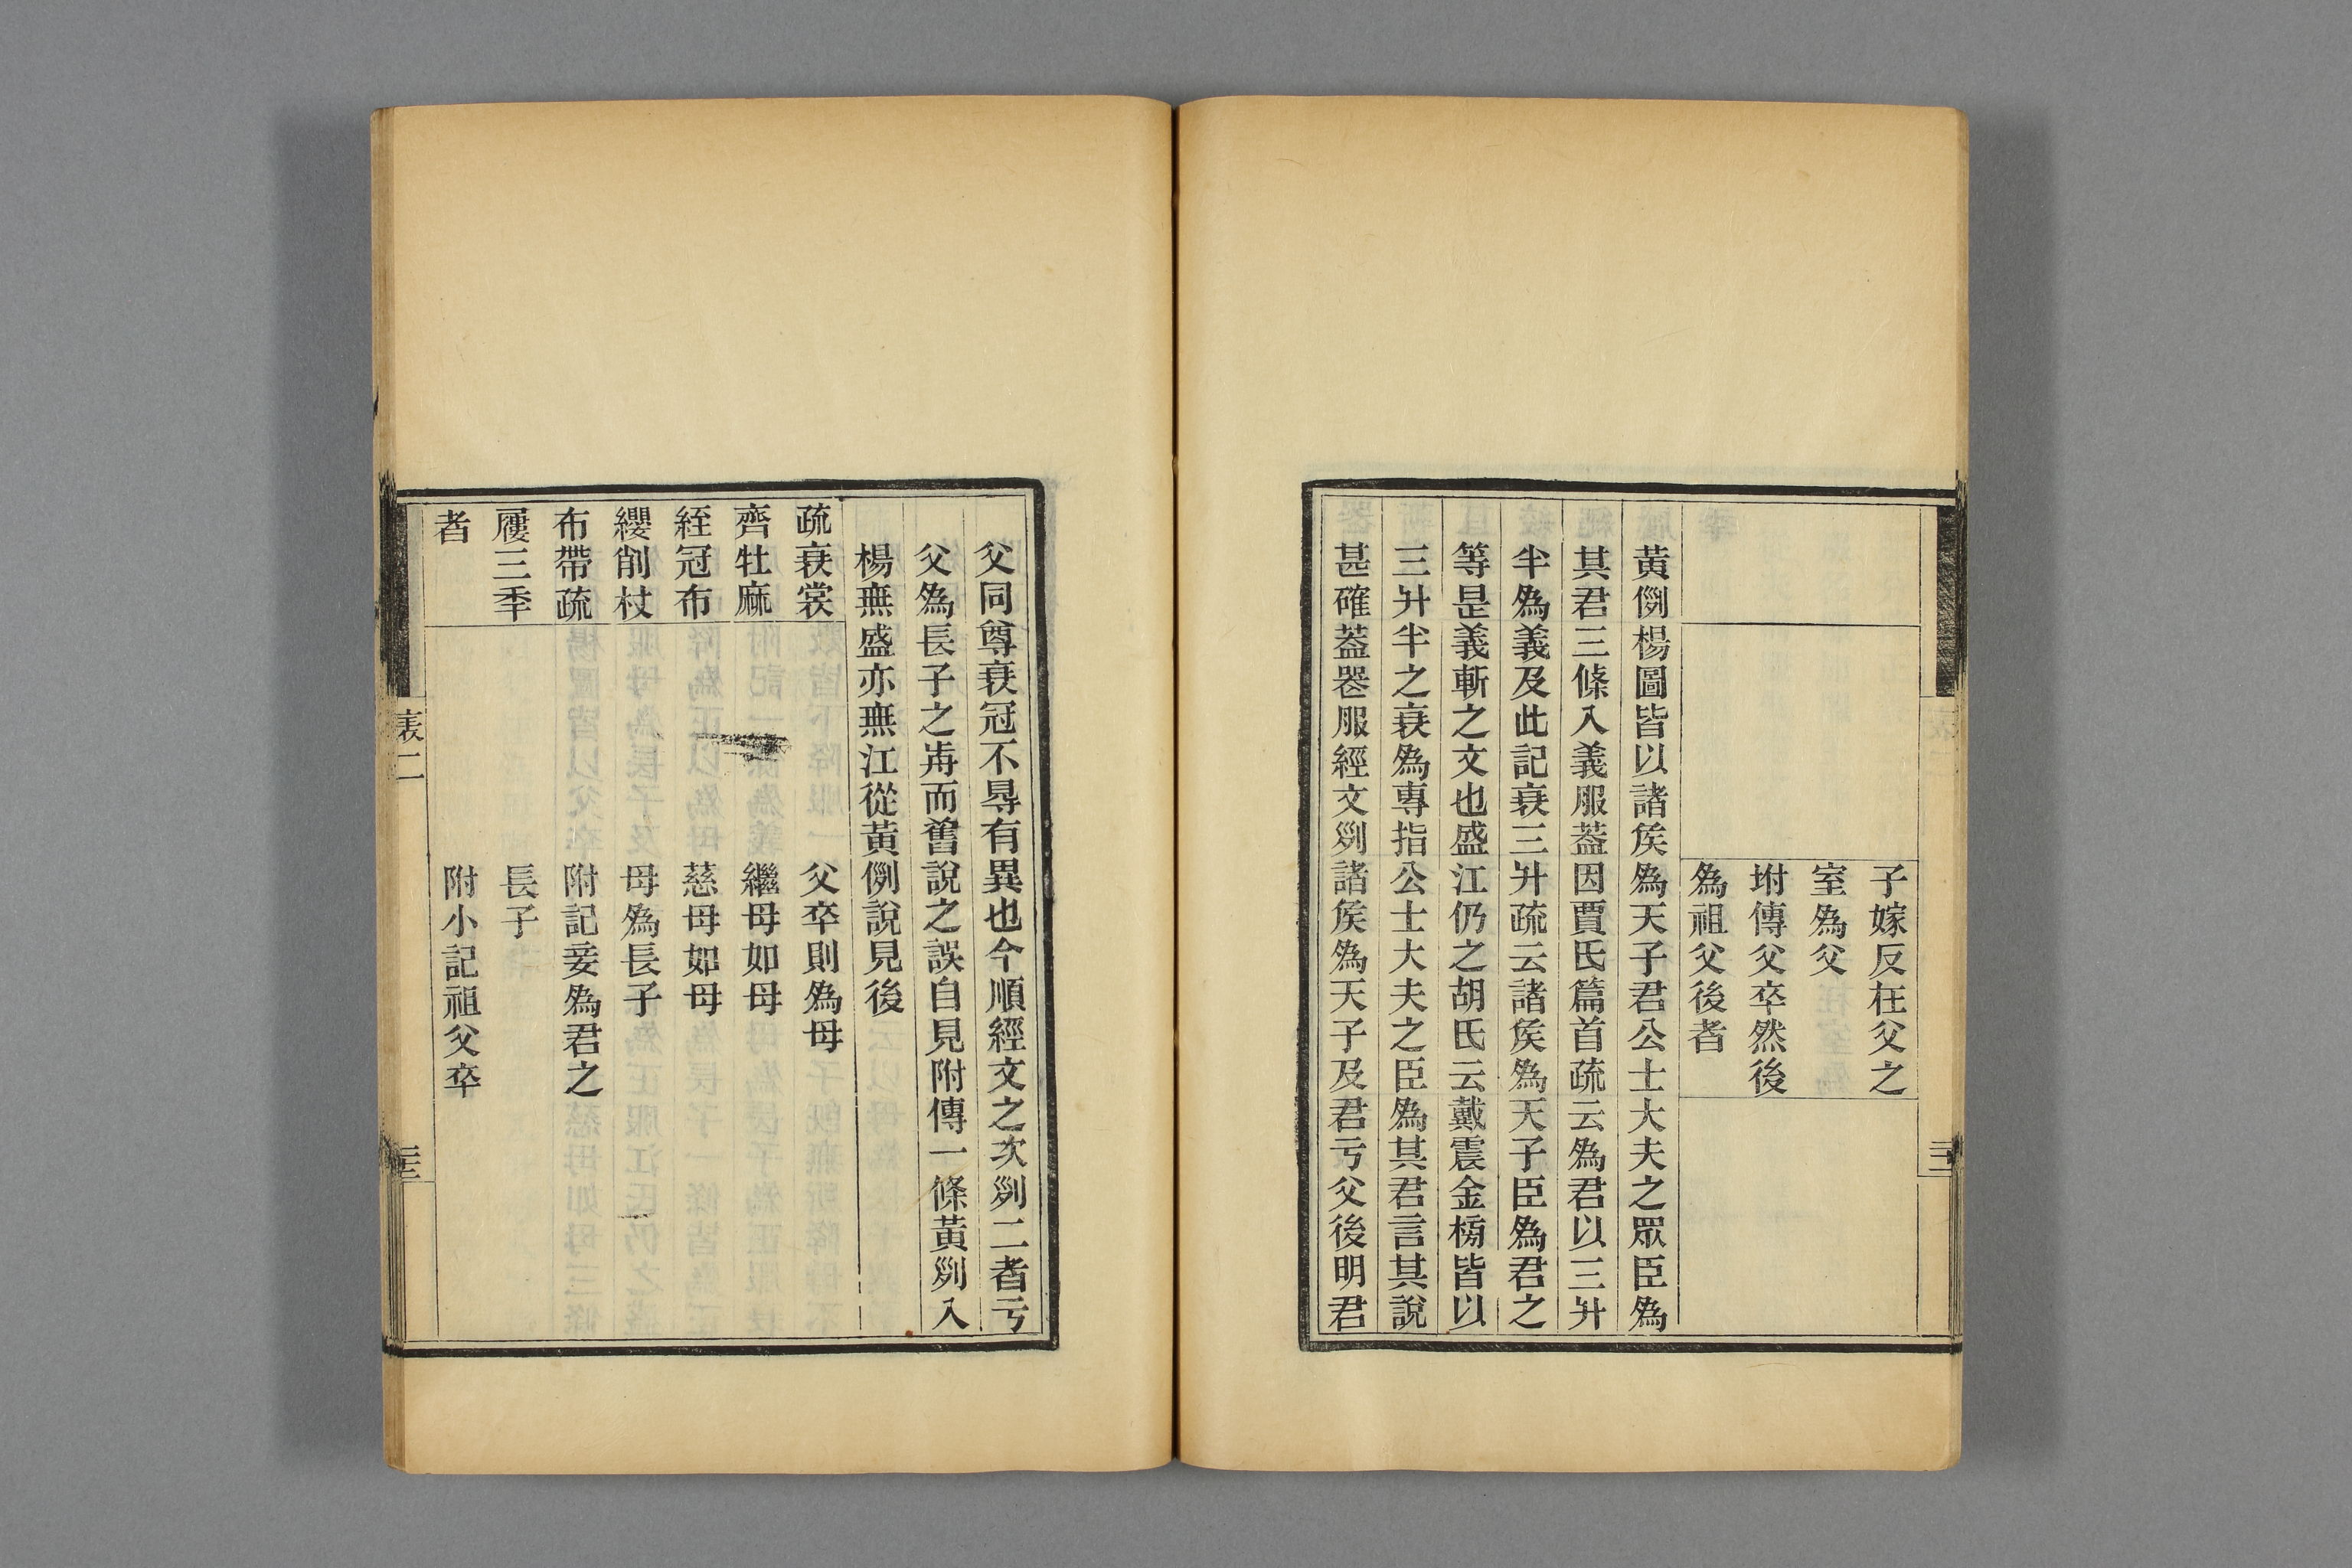 子嫁反在父之
室為父
坿傳父卒然後
為祖父後者
黃侀楊圖皆以諸矦為天子君公士大夫之眾臣為
其君三條入義服葢因賈氏篇首疏云為君以三升
半為義及此記衰三升疏云諸矦為天子臣為君之
等是義斬之文也盛江仍之胡氏云戴震金榜皆以
三升半之衰為專指公士大夫之臣為其君言其說
甚確葢喪服經文列諸矦為天子及君亏父後明君
三二
父同尊衰冠不㝵有異也今順經文之次列二者亏
父為長子之歬而舊說之誤自見附傳一條黃列入
楊無盛亦無江從黃例說見後
疏衰裳
齊牡麻
絰冠布
纓削杖
布帶疏
屨三秊
者
父卒則為母
繼母如母
慈母如母
母為長子
附記妾為君之
長子
附小記祖父卒
表二
三三